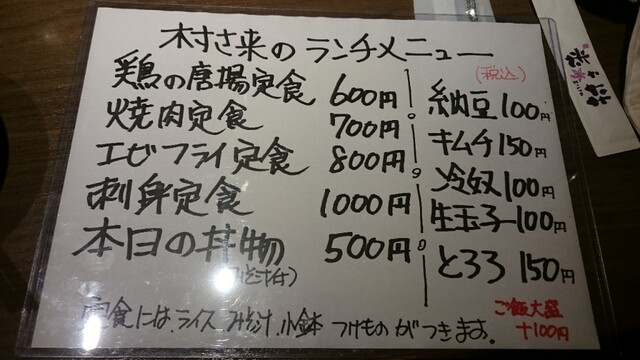 村さ来のランチメニュー
(税込)
鶏の唐揚定食 600円
焼肉定食 700円
エビフライ定食 800円
刺身定食 1000円
本日の丼物 500円
(みそ汁付)
納豆 100円
キムチ 150円
冷奴 100円
生玉子 100円
とろろ 150円
定食には、ライス みそ汁、小鉢 つけもの がつきます。
ご飯大盛
+100円